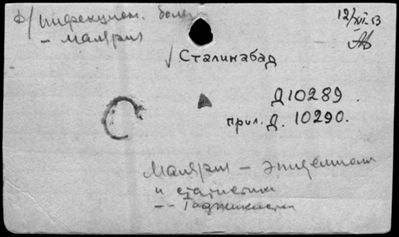 ф/ инфекцион. болез
12/XII.53
— малярия
√ Сталинабад
С
Д10289
прил. Д. 10290.
Малярия — эпидемиол
и статистика
— " — Таджикистан